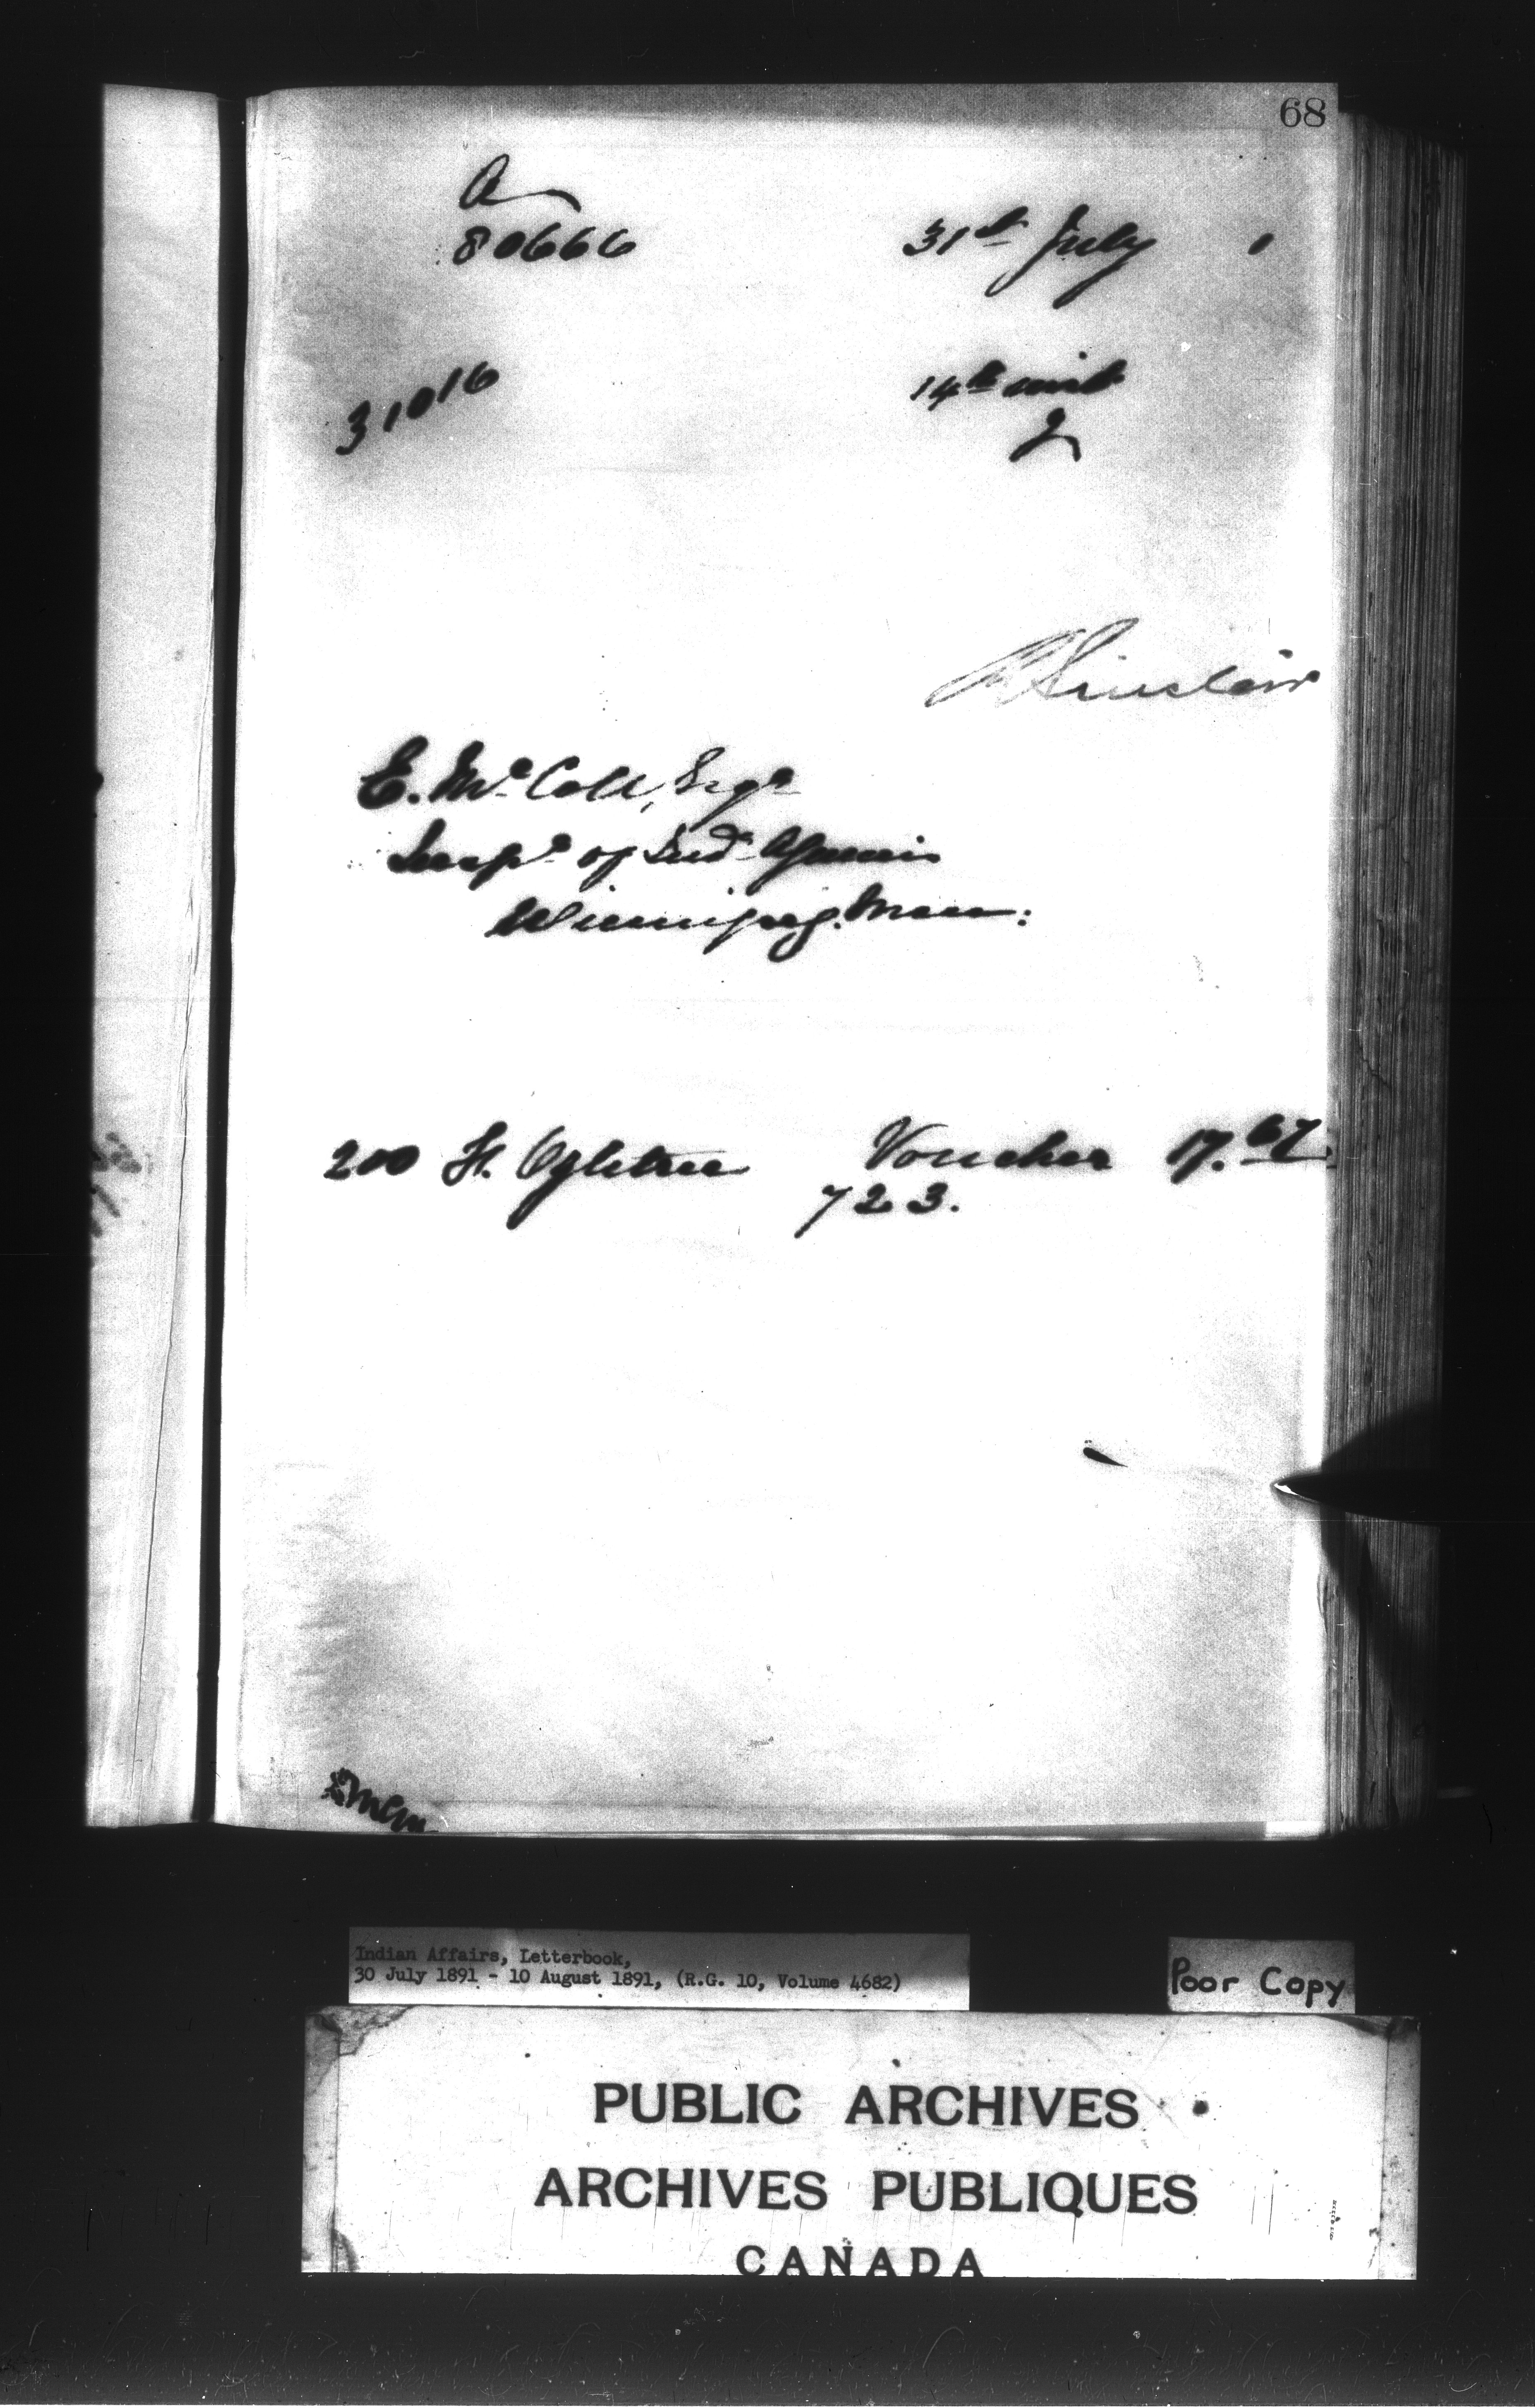 68
A
80666 31st July 1
31016 14th inst
R Sinclair
E. McColl, Esqr
Inspr of Ind. Agencies
Winnipeg. Man:
200 H. Ogletree Voucher 17.67
723.
Indian Affairs, Letterbook,
30 July 1891 - 10 August 1891, (R.G. 10, Volume 4682)
Poor Copy
PUBLIC ARCHIVES
ARCHIVES PUBLIQUES
CANADA